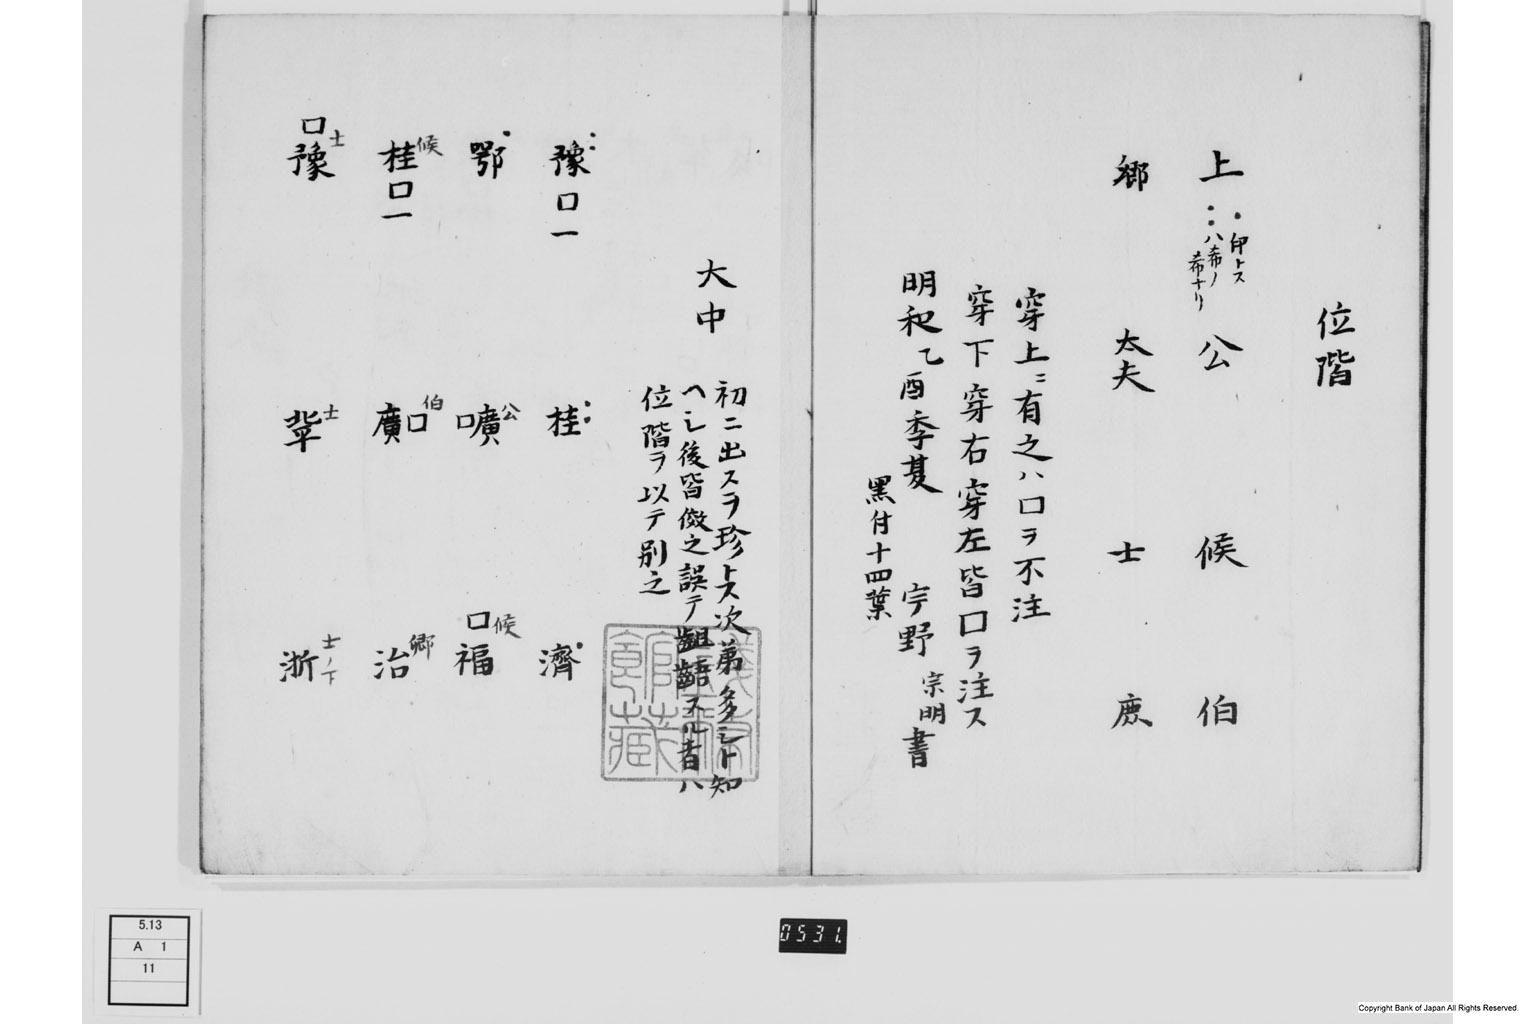 位階
上 公 候 伯
・印トス
：ハ希ノ
希ナリ
郷 太夫 士 庶
穿上ニ有之ハ口ヲ不注
穿下穿右穿左皆口ヲ注ス
明和乙酉季夏 宇野宗明書
黑付十四葉
大中
初ニ出スヲ珍トス次第多シト知
ヘシ後皆傚之誤テ齟齬スル者ハ
位階ヲ以テ別之
豫口一 桂 濟
鄂 口廣公 口福候
桂口一候 廣口伯 治郷
口豫士 士 浙士ノ下
5.13
A 1
11
0531.
Copyright Bank of Japan All Rights Reserved.